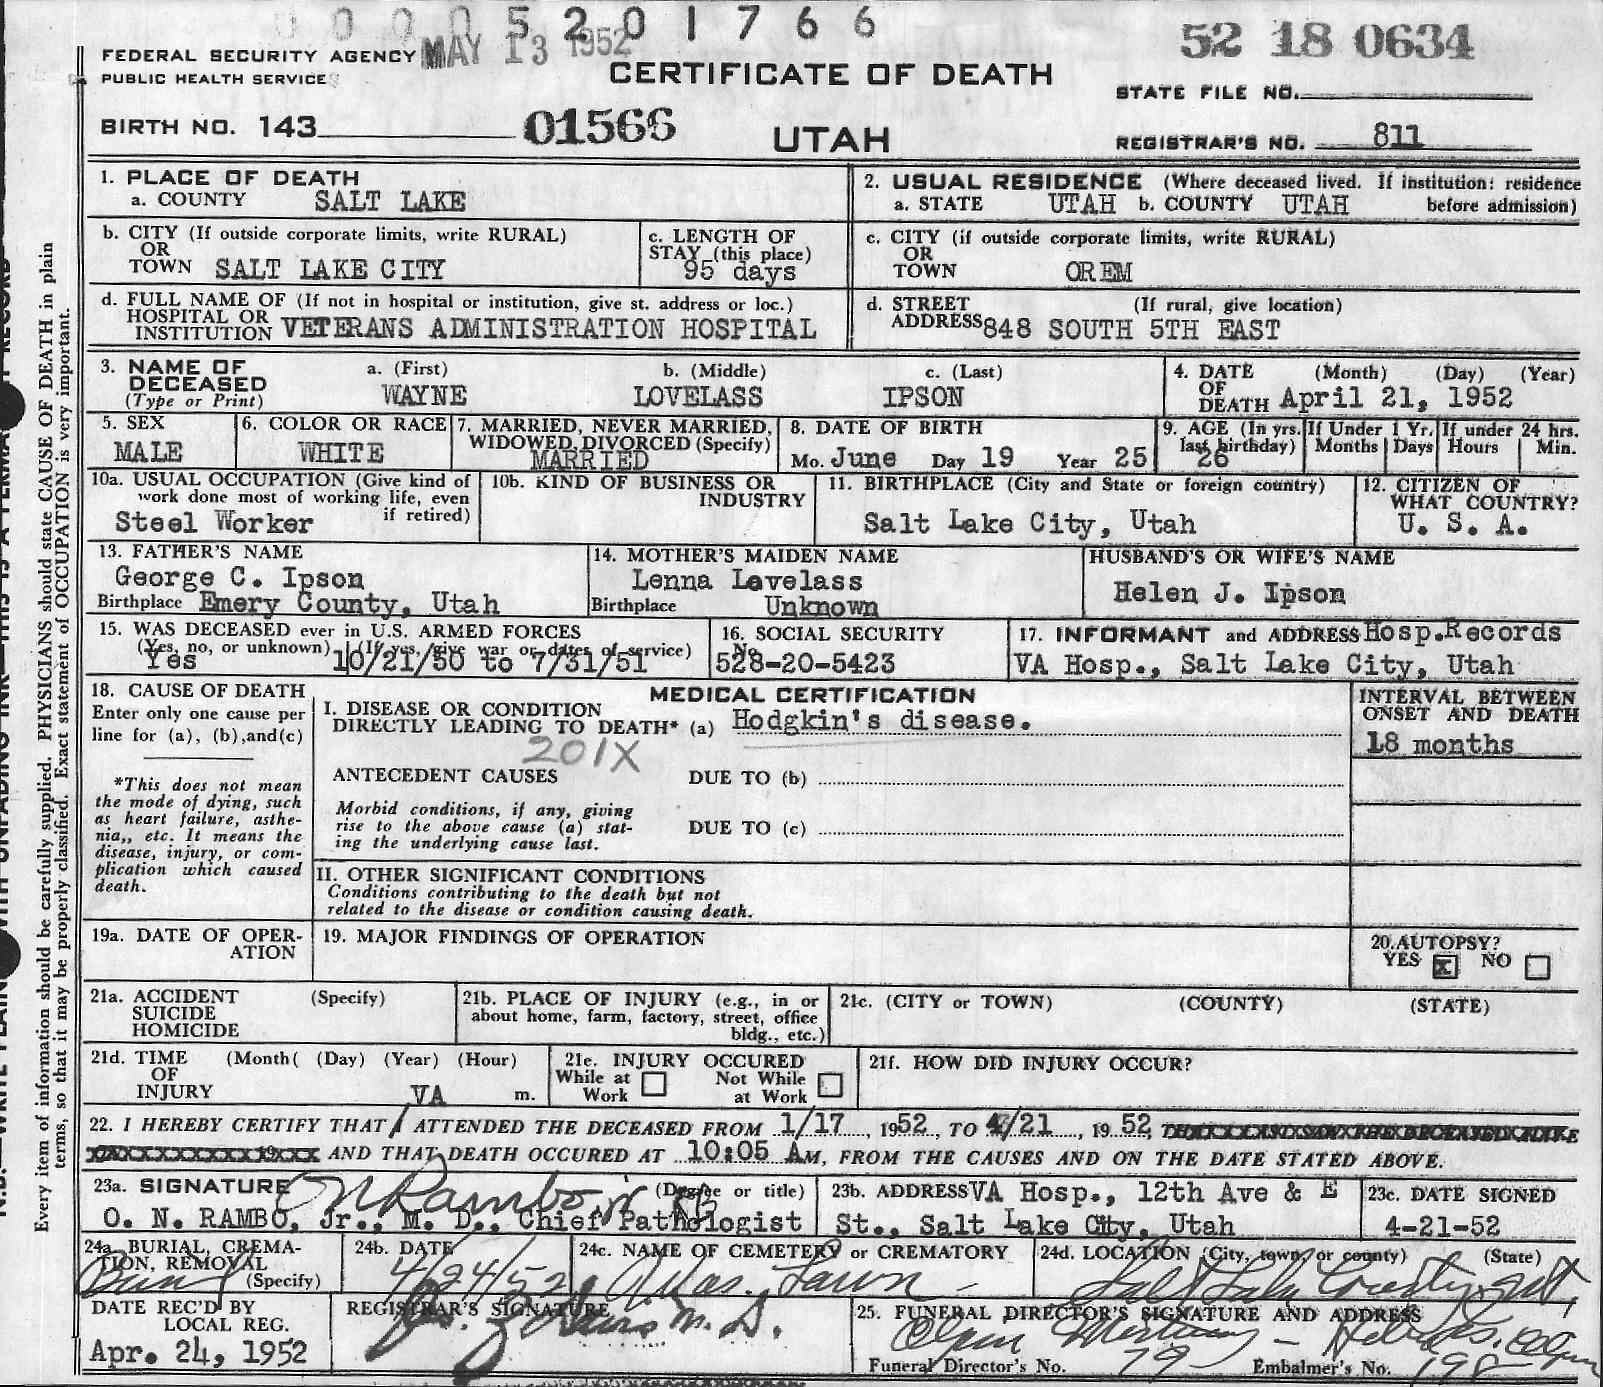 0 0 0 5 2 0 1 7 6 6
MAY 13 1952
52 18 0634
FEDERAL SECURITY AGENCY
PUBLIC HEALTH SERVICE
CERTIFICATE OF DEATH
STATE FILE NO.
BIRTH NO. 143 01566
UTAH
REGISTRAR'S NO. 811
1. PLACE OF DEATH
a. COUNTY SALT LAKE
2. USUAL RESIDENCE (Where deceased lived. If institution: residence
a. STATE UTAH b. COUNTY UTAH before admission)
b. CITY (If outside corporate limits, write RURAL)
OR
TOWN SALT LAKE CITY
c. LENGTH OF
STAY (this place)
95 days
c. CITY (if outside corporate limits, write RURAL)
OR
TOWN OREM
d. FULL NAME OF (If not in hospital or institution, give st. address or loc.)
HOSPITAL OR
INSTITUTION VETERANS ADMINISTRATION HOSPITAL
d. STREET (If rural, give location)
ADDRESS 848 SOUTH 5TH EAST
3. NAME OF a. (First) b. (Middle) c. (Last)
DECEASED
(Type or Print) WAYNE LOVELASS IPSON
4. DATE (Month) (Day) (Year)
OF
DEATH April 21, 1952
5. SEX
MALE
6. COLOR OR RACE
WHITE
7. MARRIED, NEVER MARRIED,
WIDOWED, DIVORCED (Specify)
MARRIED
8. DATE OF BIRTH
Mo. June Day 19 Year 25
9. AGE (In yrs.
last birthday)
26
If Under 1 Yr.
Months Days
If under 24 hrs.
Hours Min.
10a. USUAL OCCUPATION (Give kind of
work done most of working life, even
if retired)
Steel Worker
10b. KIND OF BUSINESS OR
INDUSTRY
11. BIRTHPLACE (City and State or foreign country)
Salt Lake City, Utah
12. CITIZEN OF
WHAT COUNTRY?
U. S. A.
13. FATHER'S NAME
George C. Ipson
Birthplace Emery County, Utah
14. MOTHER'S MAIDEN NAME
Lenna Lavelass
Birthplace Unknown
HUSBAND'S OR WIFE'S NAME
Helen J. Ipson
15. WAS DECEASED ever in U.S. ARMED FORCES
(Yes, no, or unknown) (If yes, give war or dates of service)
Yes 10/21/50 to 7/31/51
16. SOCIAL SECURITY
No.
528-20-5423
17. INFORMANT and ADDRESS Hosp.Records
VA Hosp., Salt Lake City, Utah
18. CAUSE OF DEATH
Enter only one cause per
line for (a), (b),and(c)
*This does not mean
the mode of dying, such
as heart failure, asthe-
nia,, etc. It means the
disease, injury, or com-
plication which caused
death.
MEDICAL CERTIFICATION
I. DISEASE OR CONDITION
DIRECTLY LEADING TO DEATH* (a) Hodgkin's disease.
201X
ANTECEDENT CAUSES DUE TO (b)
Morbid conditions, if any, giving
rise to the above cause (a) stat-
ing the underlying cause last.
DUE TO (c)
INTERVAL BETWEEN
ONSET AND DEATH
18 months
II. OTHER SIGNIFICANT CONDITIONS
Conditions contributing to the death but not
related to the disease or condition causing death.
19a. DATE OF OPER-
ATION
19. MAJOR FINDINGS OF OPERATION
20. AUTOPSY?
YES x NO
21a. ACCIDENT (Specify)
SUICIDE
HOMICIDE
21b. PLACE OF INJURY (e.g., in or
about home, farm, factory, street, office
bldg., etc.)
21c. (CITY or TOWN) (COUNTY) (STATE)
21d. TIME (Month( (Day) (Year) (Hour)
OF
INJURY VA m.
21e. INJURY OCCURED
While at Work Not While at Work
21f. HOW DID INJURY OCCUR?
22. I HEREBY CERTIFY THAT I ATTENDED THE DECEASED FROM 1/17, 1952, TO 4/21, 1952,
AND THAT DEATH OCCURED AT 10:05 AM, FROM THE CAUSES AND ON THE DATE STATED ABOVE.
23a. SIGNATURE O N Rambo, Jr (Degree or title)
O. N. RAMBO, Jr., M. D., Chief Pathologist
23b. ADDRESS VA Hosp., 12th Ave & E
St., Salt Lake City, Utah
23c. DATE SIGNED
4-21-52
24a. BURIAL, CREMA-
TION, REMOVAL
(Specify)
24b. DATE
4/24/52
24c. NAME OF CEMETERY or CREMATORY
Lawn
24d. LOCATION (City, town, or county) (State)
Salt Lake County, Ut,
DATE REC'D BY
LOCAL REG.
Apr. 24, 1952
REGISTRAR'S SIGNATURE
M. D.
25. FUNERAL DIRECTOR'S SIGNATURE AND ADDRESS
Mortuary
Funeral Director's No. 79 Embalmer's No. 198
Every item of information should be carefully supplied. PHYSICIANS should state CAUSE OF DEATH in plain
terms, so that it may be properly classified. Exact statement of OCCUPATION is very important.